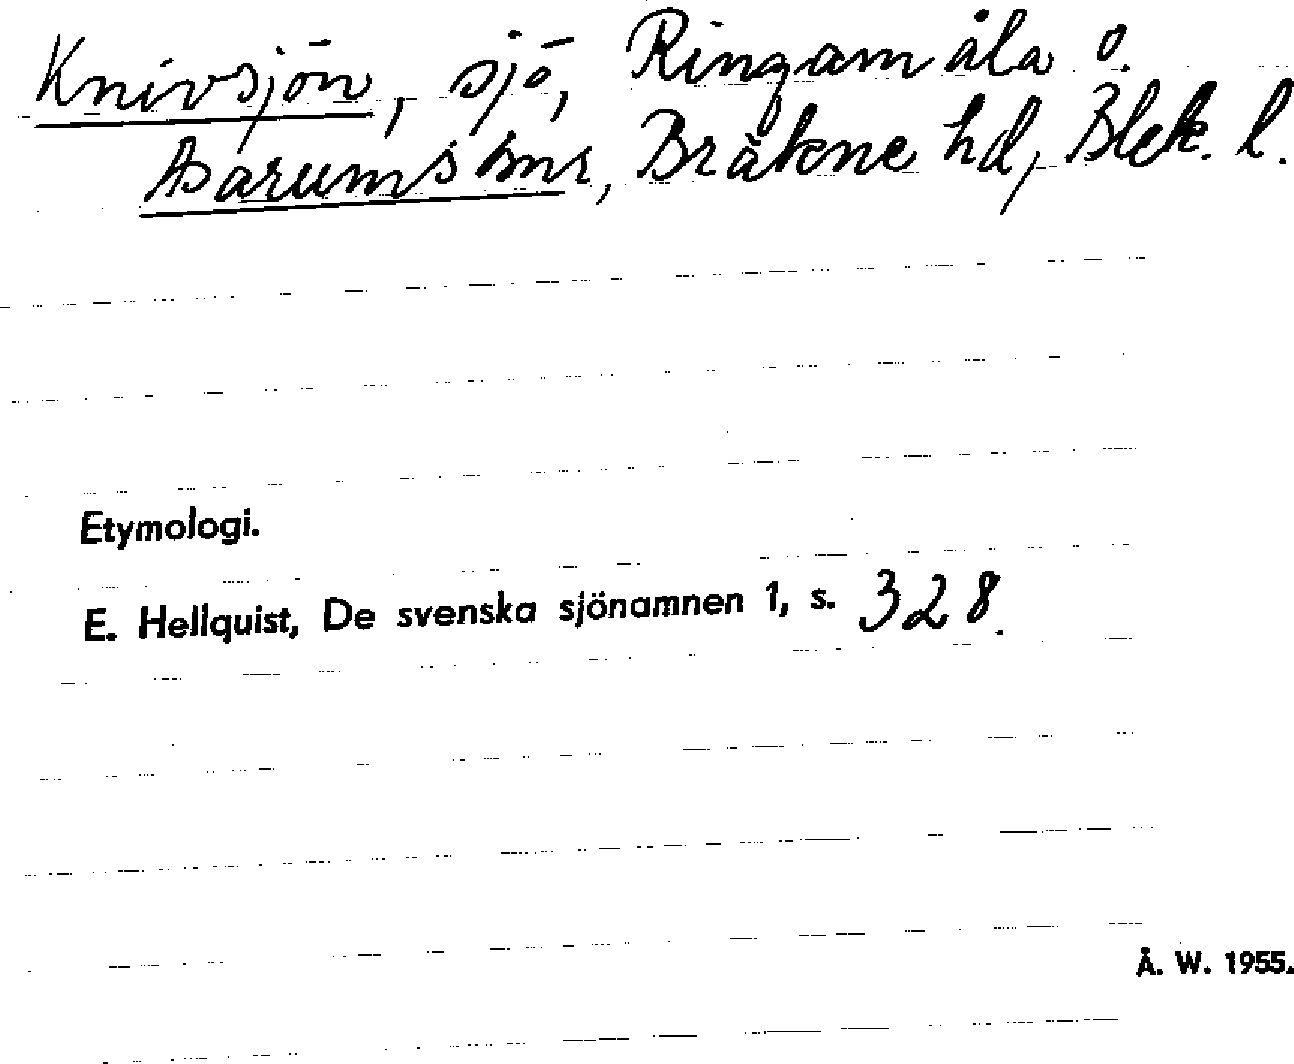 Knivsjön, sjö, Ringamåla o.
Asarums snr, Bräkne hd, Blek. l.
Etymologi.
E. Hellquist, De svenska sjönamnen 1, s. 328.
Å. W. 1955.